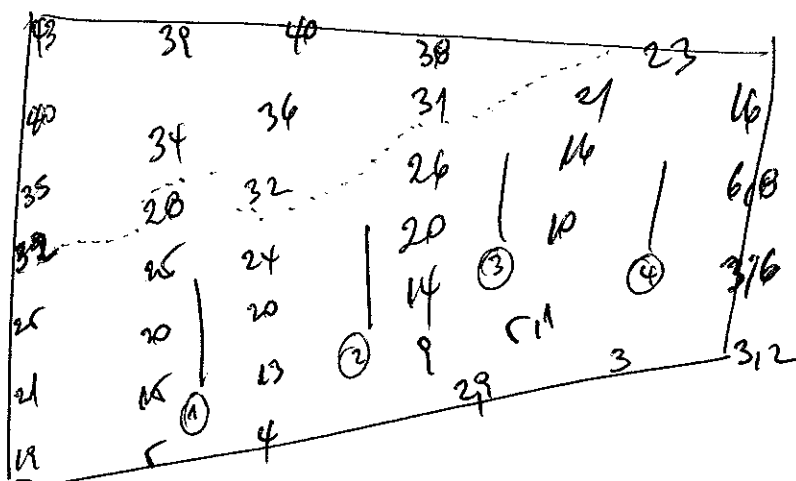 43 39 40 38 23
40 34 36 31 21 16
35 28 32 26 16 6,8
25 24 20 10 3,6
25 20 20 14 5,1
21 15 13 9 3 3,2
19 5 4 2,9
1 2 3 4